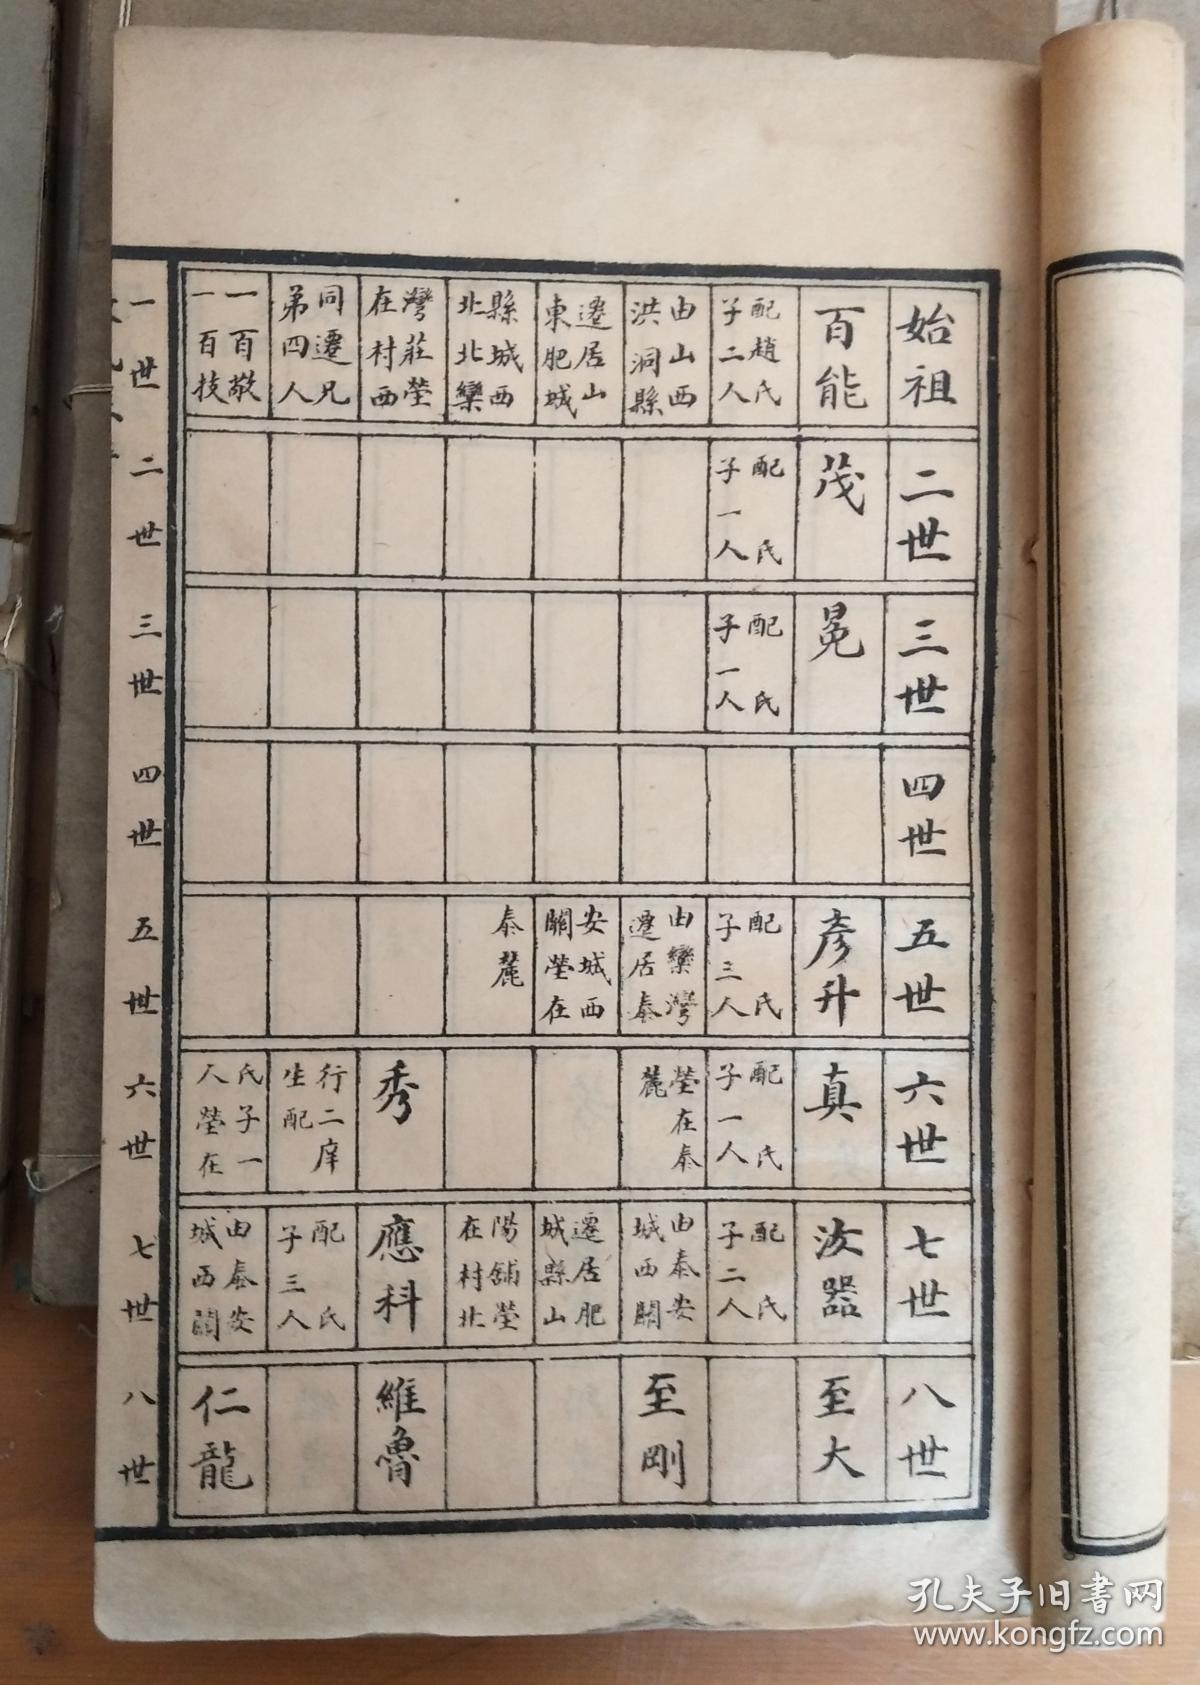 始祖
百能
配趙氏
子二人
由山西
洪洞縣
遷居山
東肥城
縣城西
北北欒
灣莊塋
在村西
同遷兄
弟四人
一百敬
一百技
二世
茂
配 氏
子一人
三世
冕
配 氏
子一人
四世
五世
彥升
配 氏
子三人
由欒灣
遷居泰
安城西
關塋在
泰麓
六世
真
配 氏
子一人
塋在泰
麓
秀
行二庠
生配
氏子一
人塋在
七世
汝器
配 氏
子二人
由泰安
城西關
遷居肥
城縣山
陽舖塋
在村北
應科
配 氏
子三人
由泰安
城西關
八世
至大
至剛
維魯
仁龍
一世
二世
三世
四世
五世
六世
七世
八世
孔夫子旧書网
www.kongfz.com